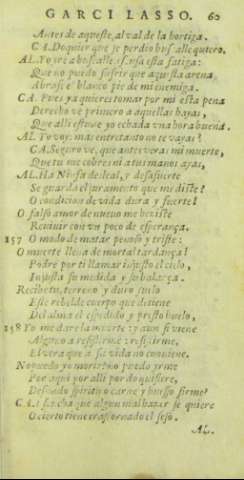 GARCI LASSO. 60
Antes de aqueste, al val de la hortiga.
CA. Doquier que se perdio buscalle quiero.
AL. Yo yre a buscalle, si, essa fatiga:
Que no puedo sufrir que aquesta arena
Abrase el blanco pie de mi enemiga.
CA. Pues ya quieres tomar por mi esta pena
Derecho ve primero a aquellas hayas,
Que alli estuue yo echada vna hora buena.
AL. Yo voy: mas entretanto no te vayas?
CA. Seguro ve, que antes vera mi muerte,
Que tu me cobres ni a tus manos ayas,
AL. Ha Nimfa desleal, y desa suerte
Se guarda el juramento que me diste?
O condicion de vida dura y fuerte!
O falso amor de nueuo me heziste
Reuiuir con vn poco de esperança.
157 O modo de matar penoso y triste:
O muerte llena de mortal tardança!
Podre por ti llamar injusto el cielo,
Injusta su medida y su balança.
Recibe tu, terreno y duro suelo
Este rebelde cuerpo que detiene
Del alma el espedido y presto buelo,
158 Yo me dare la muerte: y aun si viene
Alguno a resistirme: resistirme,
El vera que a su vida no conuiene.
No puedo yo morirme? no puedo yrme
Por aqui yor alli por do quisiere,
Desnudo spiritu o carne y huesso firme?
CA. que algun mal hazer se quiere
O cierto tiene trastornado el seso.
AL.